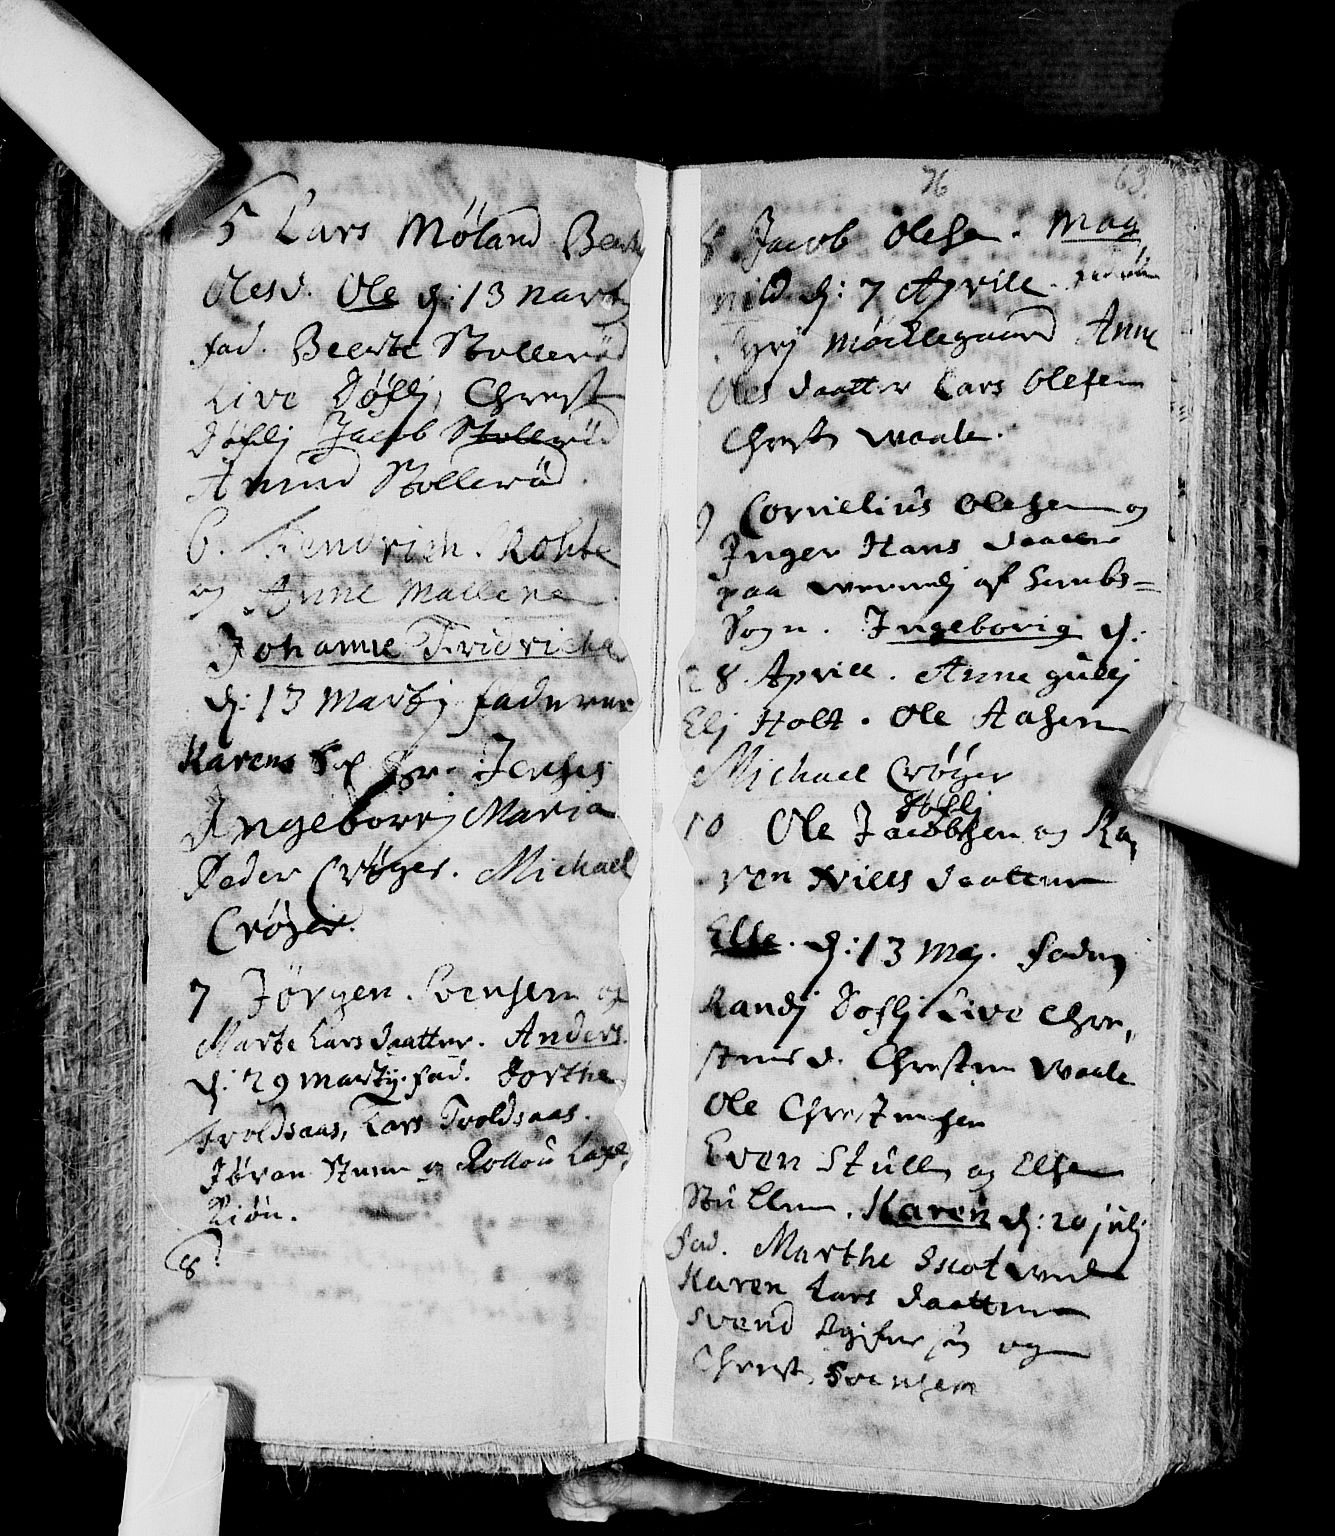 5 Lars Møland Beerte
Olesd. Ole d: 13 Marty
fad. Beerte Stollerød
Live Døflj, Christ
Døflj Jacob Stollerød
Amund Stollerød.
6. Hendrich Rohte
og Anne Mallene
Johanne Fridriche
d: 13 Marty faderne
Karen Sr. Jenses
Ingeborrj Maria
Peder Crøger. Michael
Crøger.
7 Jørgen Svensen og
Marte Lars daatter. Anders
d: 29 Marty. fad. Dorthe
Troldsaas, Lars Troldsaas.
Jøran
8
76 63
8 Jacob Olesen. Mag
nild d: 7 Aprile.
Møcklegaard Anne
Oles daatter Lars Olesen
Christ Waale.
9 Cornelius Olesen og
Inger Hans daatter
paa af
Sogn. Ingeborig d:
28 Aprill. Anne gullj
Elj Holt. Ole Aasen
Michael Crøger
Døflj
10 Ole Jacobsen og Ka
ren Nills daatter
Else. d: 13 Mej. fad
Randj Døflj Live Chri
stens d. Christen Waale
Ole Christensen
Even Stulen og Else
Stullen. Karen d: 20 julj
fad. Marthe
Karen Lars daatter
Svend og
Christ. Svensen